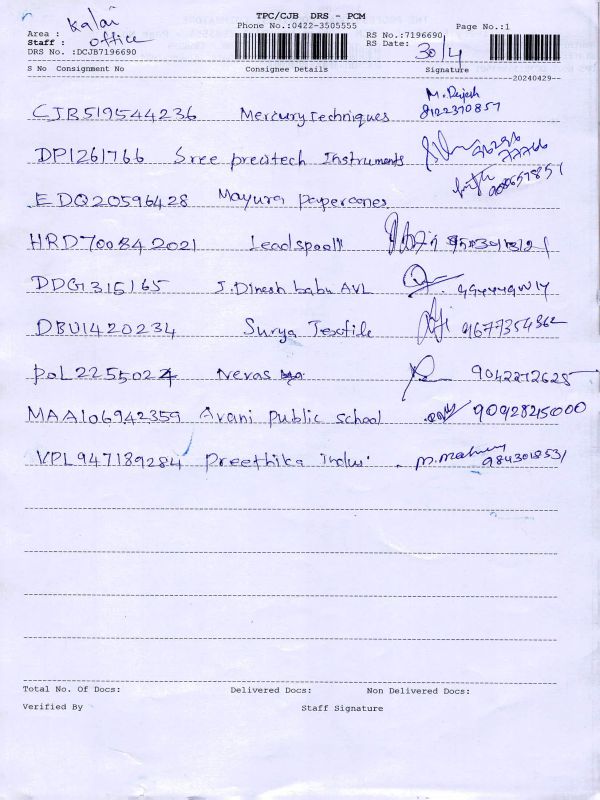 TPC/CJB DRS - PCM
Kalai
Phone No.:0422-3505555
Page No.:1
Area :
RS No.:7196690
Staff : office
RS Date: 30/4
DRS No. :DCJB7196690
S No Consignment No Consignee Details Signature
20240429--
M. Rajesh
CJB519544236 Mercury Techniques 8122370857
DPI261766 Sree precitech Instruments
EDQ20596428 Mayura papercones
HRD70084 2021 Leadspool
DDG1315165 J. Dinesh babu AVL
DBU1420234 Surya Textile 9677354362
POL2255027 Nevas 9042272625
MAA106942359 Avani public school 9092845000
VPL947189284 Preethika Indus. M. 9843018531
Total No. Of Docs: Delivered Docs: Non Delivered Docs:
Verified By Staff Signature